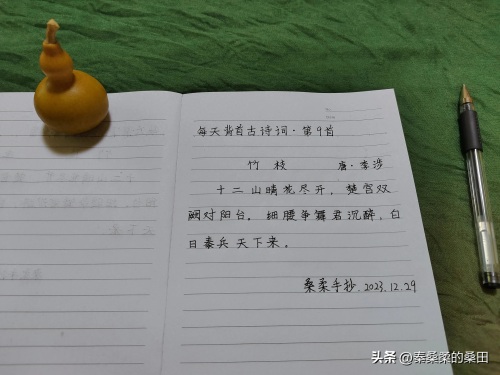 每天背首古诗词·第9首
竹枝 唐·李涉
十二山晴花尽开，楚宫双
阙对阳台。细腰争舞君沉醉，白
日秦兵天下来。
桑柔手抄.2023.12.29
头条 @秦桑梁的桑田